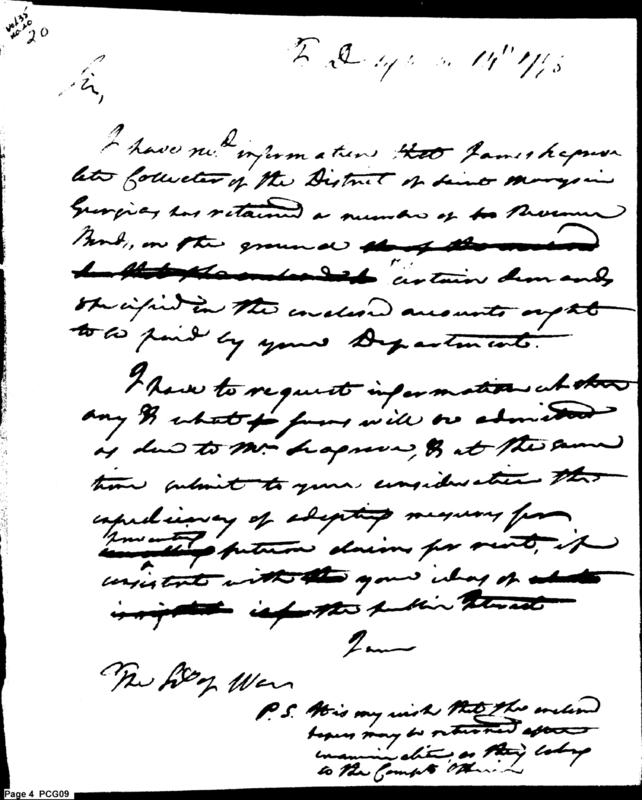 Vol 35
No. 20
20
T. D.
Sir,
I have rec.d information that James Seagrove
late Collector of the District of Saint Marys in
Georgia, has retained a number of Revenue
Bonds, on the ground
certain demands
specified in the enclosed accounts ought
to be paid by your Department.
I have to request information whether
any & what sums will be admitted
as due to Mr. Seagrove, & at the same
time submit to your consideration the
expediency of adopting measures for
preventing
future claims for rent, if
consistent with your ideas of
the public Interest
I am
The Secy of War
P.S. It is my wish that the enclosed
papers may be returned after
examination as they belong
to the Compts Office
Page 4 PCG09